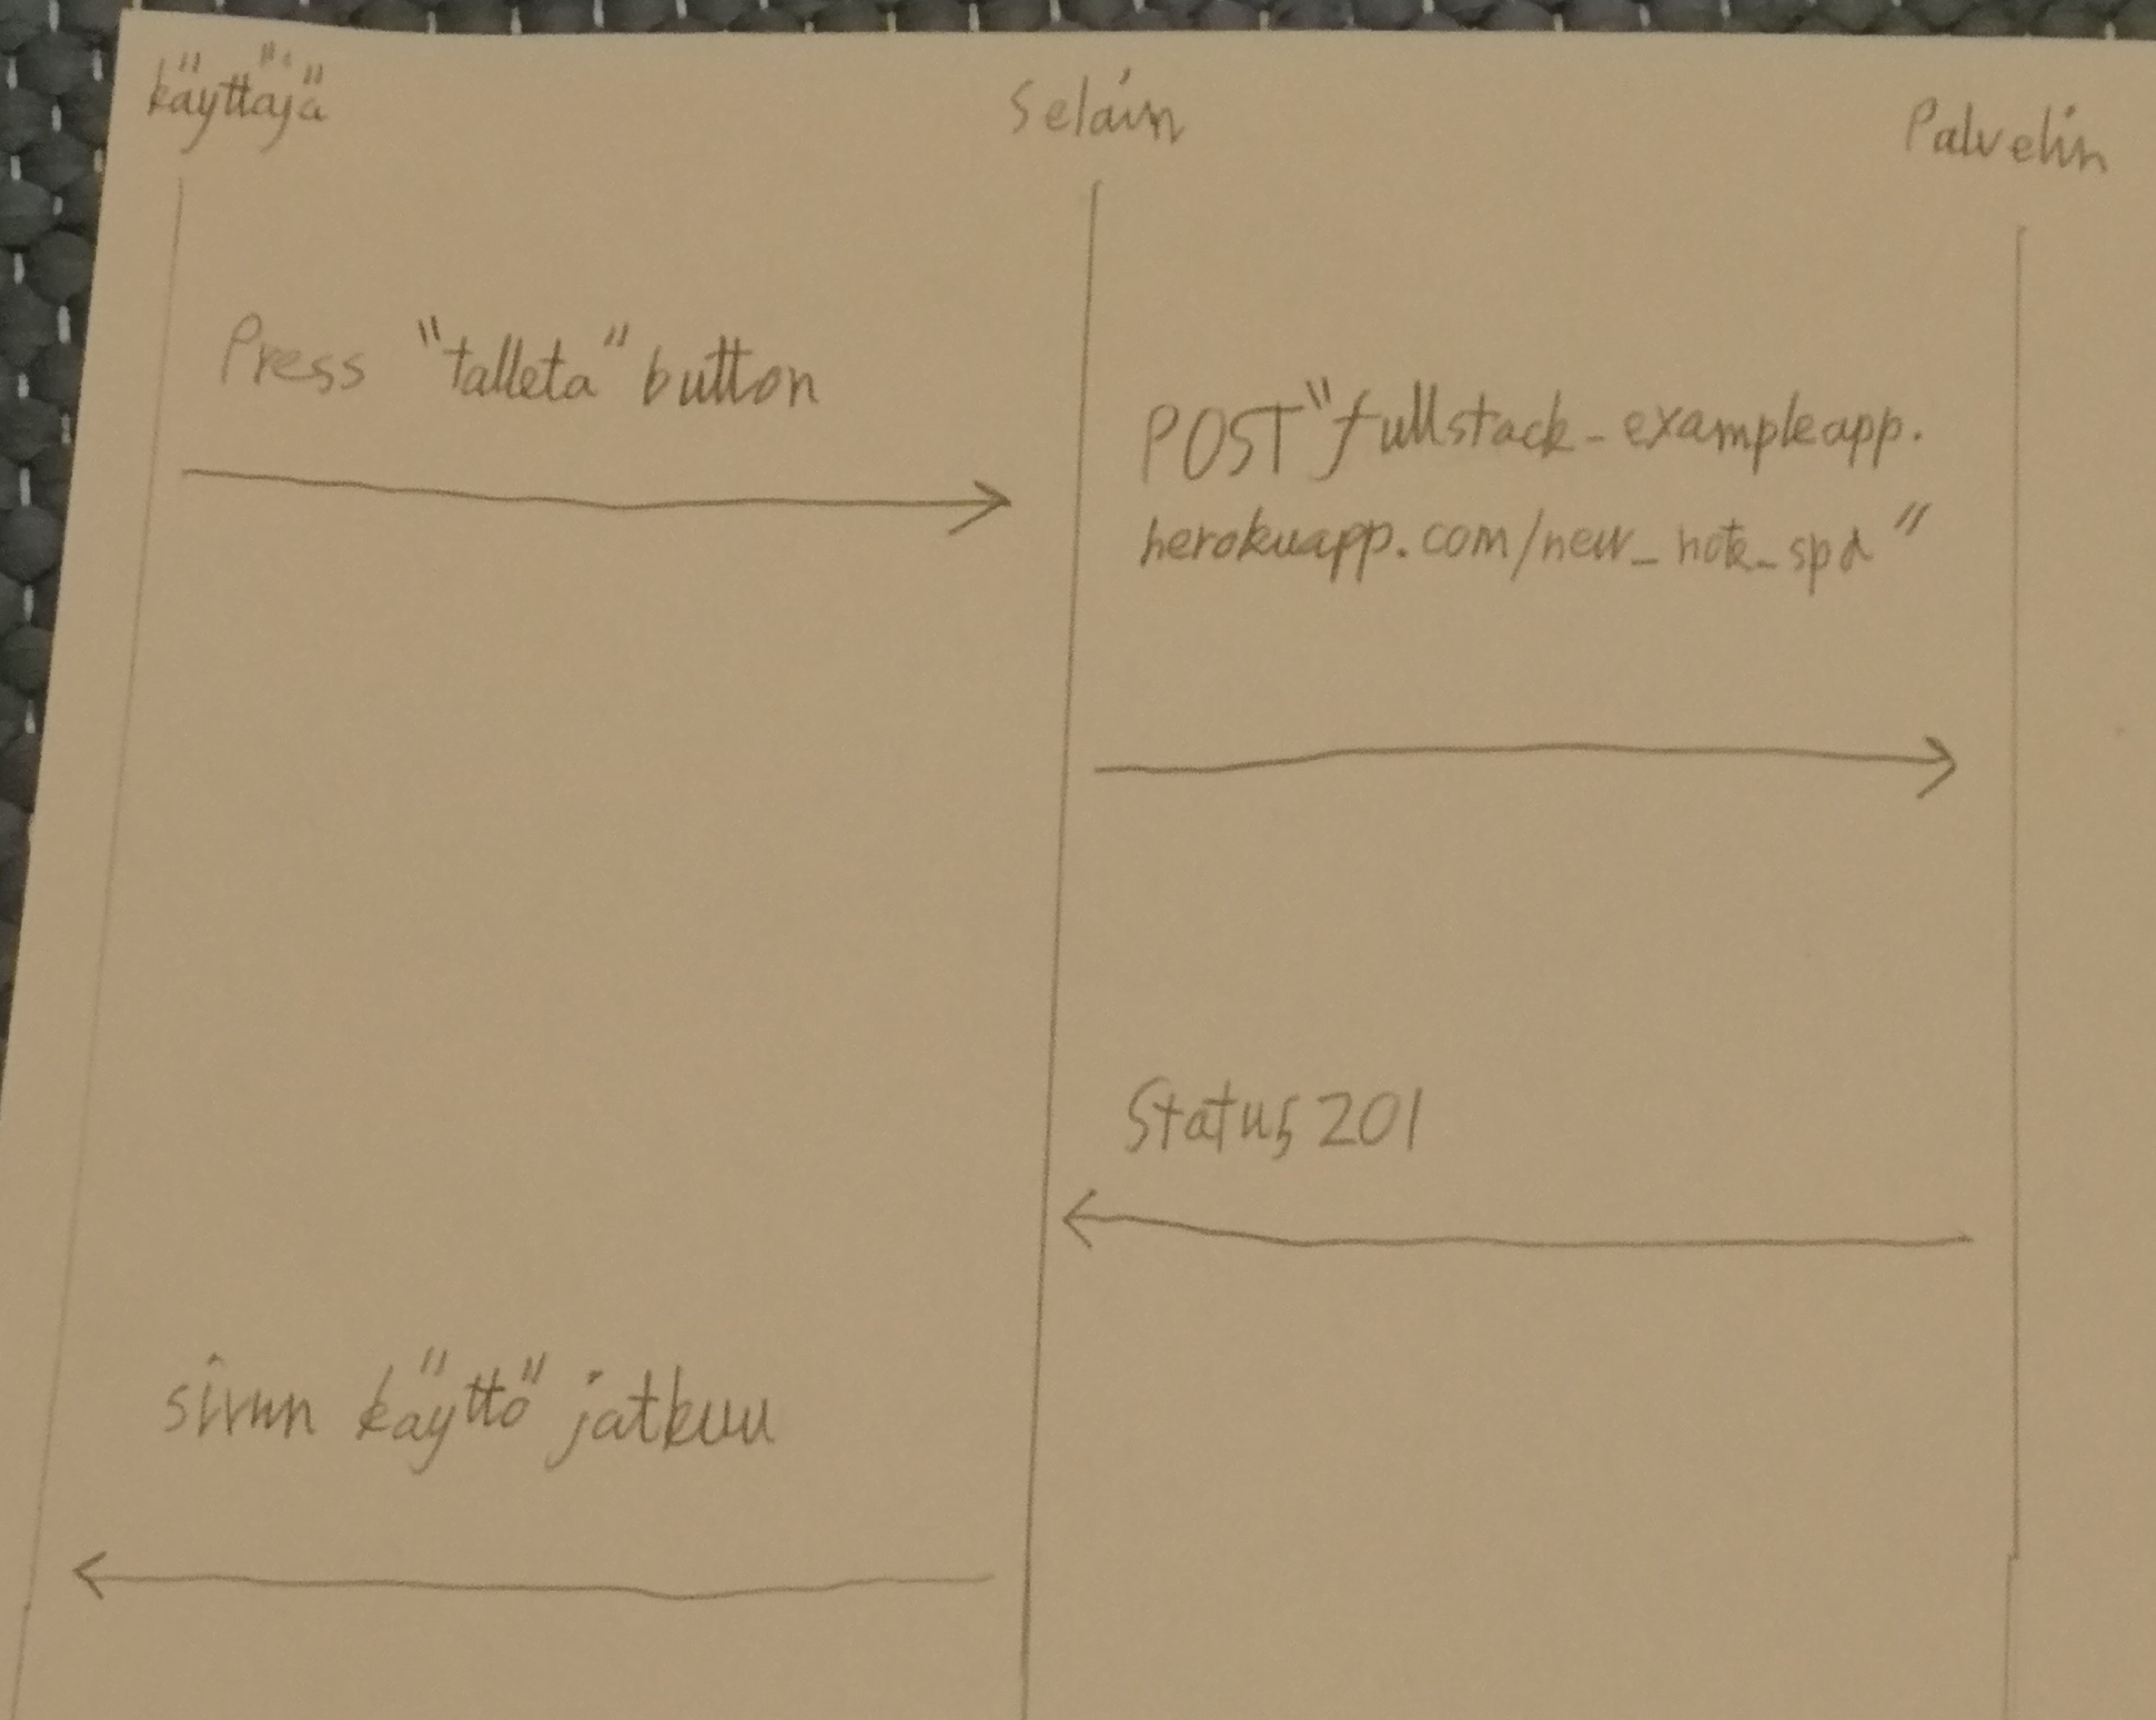 käyttäjä
Selain
Palvelin
Press "talleta" button
POST "fullstack-exampleapp.
herokuapp.com/new_note_spa"
Status 201
sivun käyttö jatkuu